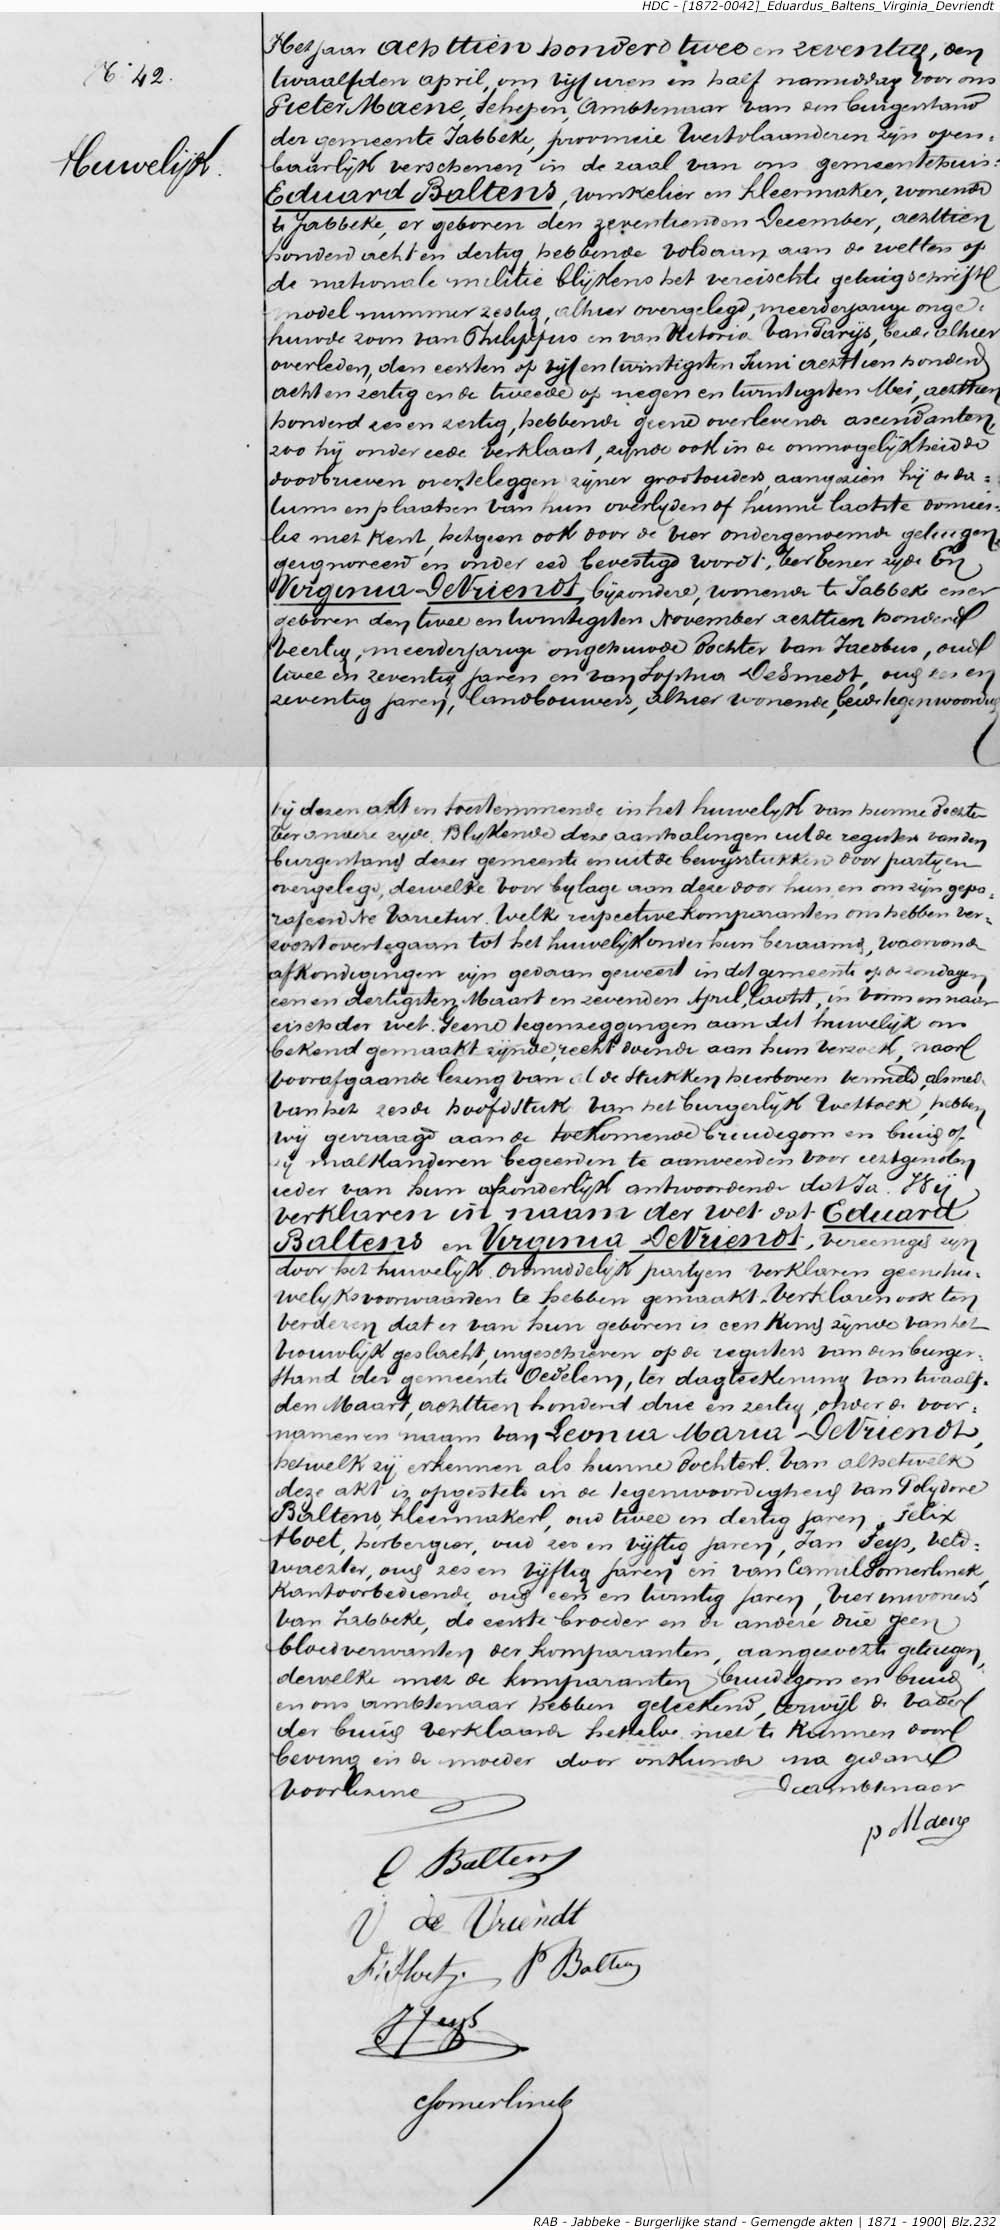 HDC - [1872-0042]_Eduardus_Baltens_Virginia_Devriendt
N° 42.
Huwelijk.
Het jaar achttien honderd twee en zeventig, den
twaalfden april, om vijf uren en half namiddag voor ons
Pieter Maene, Schepen, Ambtenaar van den burgerstand
der gemeente Jabbeke, provincie Westvlaanderen zijn open=
baarlijk verschenen in de zaal van ons gemeentehuis:
Eduard Baltens, winkelier en kleermaker, wonende
te Jabbeke, er geboren den zeventienden December, achttien
honderd acht en dertig, hebbende voldaan aan de wetten op
de nationale militie blijkens het vereischte getuigschrift
model nummer zestig, alhier overgelegd, meerderjarige onge=
huwde zoon van Philippus en van Victoria Van Parijs, beide alhier
overleden, den eersten op vijf en twintigsten Juni achttien honderd
acht en zestig en de tweede op negen en twintigsten Mei, achttien
honderd zes en zestig, hebbende geene overlevende ascendanten,
zoo hij onder eede verklaart, zijnde ook in de onmogelijkheid de
doodbrieven overteleggen zijner grootouders, aangezien hij de da=
tums en plaatsen van hun overlijden of hunne laatste domici=
lie niet kent, hetgeen ook door de vier ondergenoemde getuigen,
geignoreerd en onder eed bevestigd wordt, ter eener zijde En
Virginia DeVriendt, bijzondere, wonende te Jabbeke en er
geboren den twee en twintigsten November achttien honderd
veertig, meerderjarige ongehuwde dochter van Jacobus, oud
twee en zeventig jaren en van Sophia DeSmedt, oud zes en
zeventig jaren, landbouwers, alhier wonende, beide tegenwoordig
bij dezen akt en toestemmende in het huwelijk van hunne dochter
ter andere zijde. Blijkende deze aanhalingen uit de registers van den
burgerstand dezer gemeente en uit de bewijsstukken door partijen
overgelegd, dewelke voor bylage aan deze door hun en ons zijn gepa=
rafeerd Ne Varietur. Welke respective komparanten ons hebben ver=
zocht overtegaan tot het huwelijk onder hun beraamd, waarvan de
afkondigingen zijn gedaan geweest in dit gemeente op de zondagen
een en dertigsten Maart en zevenden April, laatst, in vorm en naar
eisch der wet. Geene tegenzeggingen aan dit huwelijk ons
bekend gemaakt zijnde, recht doende aan hun verzoek, naar
voorafgaande lezing van al de stukken hierboven vermeld, alsmede
van het zesde hoofdstuk van het burgerlijk Wetboek, hebben
wij gevraagd aan de toekomende bruidegom en bruid of
zij malkanderen begeerden te aanveerden voor echtgenoten
ieder van hun afzonderlijk antwoordende dat Ja. Wij
verklaren in naam der wet dat Eduard
Baltens en Virginia DeVriendt, vereenigd zijn
door het huwelijk. Onmiddelijk partijen verklaren geene hu=
welijksvoorwaarden te hebben gemaakt. Verklaren ook ten
verderen dat er van hun geboren is een kind zijnde van het
vrouwlijk geslacht, ingeschreven op de registers van den burger=
stand der gemeente Oedelem, ter dagteekening van twaalf=
den Maart, achttien honderd drie en zestig, onder de voor=
namen en naam van Leonia Maria DeVriendt,
hetwelk zij erkennen als hunne dochter. Van al hetwelk
deze akt is opgesteld in de tegenwoordigheid van Polydore
Baltens, kleermaker, oud twee en dertig jaren, Felix
Hoet, herbergier, oud zes en vijftig jaren, Jan Feys, veld=
wachter, oud zes en vijftig jaren en van Camil Somerlinck,
kantoorbediende, oud een en twintig jaren, vier inwoners
van Jabbeke, de eerste broeder en de andere drie geen
bloedverwanten der komparanten, aangezochte getuigen,
dewelke met de komparanten bruidegom en bruid
en ons ambtenaar hebben geteekend, terwijl de vader
der bruid verklaarde hetzelve niet te kunnen door
beving en de moeder door onkunde na gedane
voorlezing
De ambtenaar
p Maene
E Baltens
V de Vriendt
F. Hoet P Baltens
J Feys
C Somerlinck
RAB - Jabbeke - Burgerlijke stand - Gemengde akten | 1871 - 1900| Blz.232